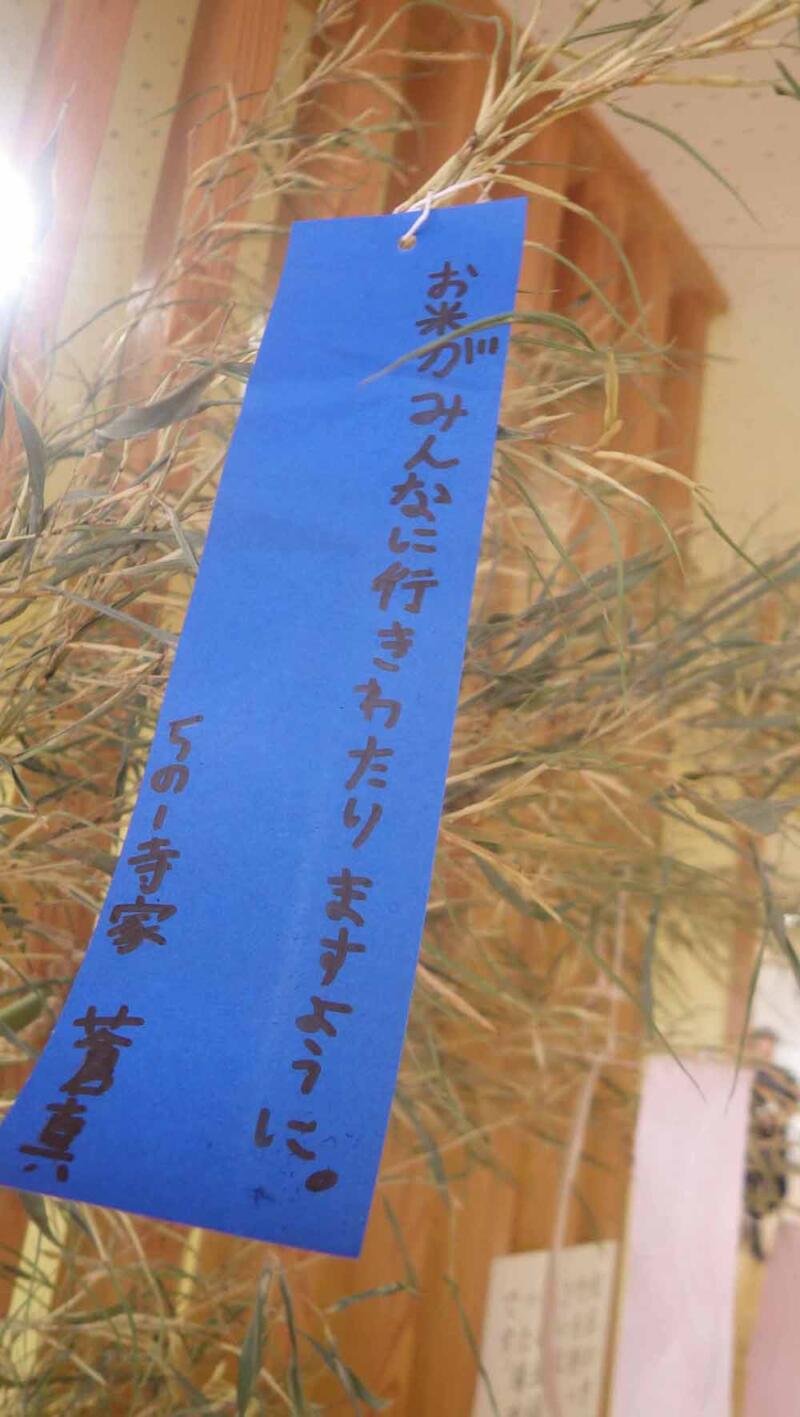 お米がみんなに行きわたりますように。
5の1 寺家 蒼真